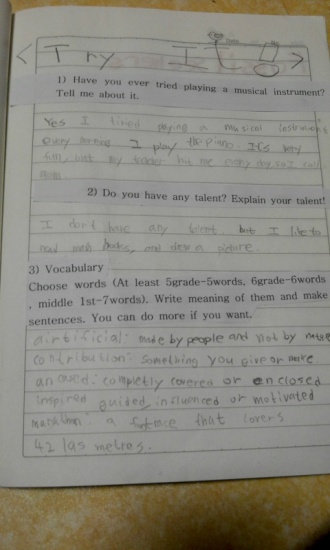 < Try It! >
1) Have you ever tried playing a musical instrument?
Tell me about it.
Yes I tried playing a musical instrument
every morning I play the piano. It's very
fun, but my teacher hit me every day, so I call
mom.
2) Do you have any talent? Explain your talent!
I don't have any talent but I like to
read books, and draw a picture.
3) Vocabulary
Choose words (At least 5grade-5words, 6grade-6words
, middle 1st-7words). Write meaning of them and make
sentences. You can do more if you want.
airtificial: made by people and not by nature
contribution: something you give or
encased: completely covered or enclosed
inspired guided, influenced or motivated
marathon: a race that covers
42.195 metres.